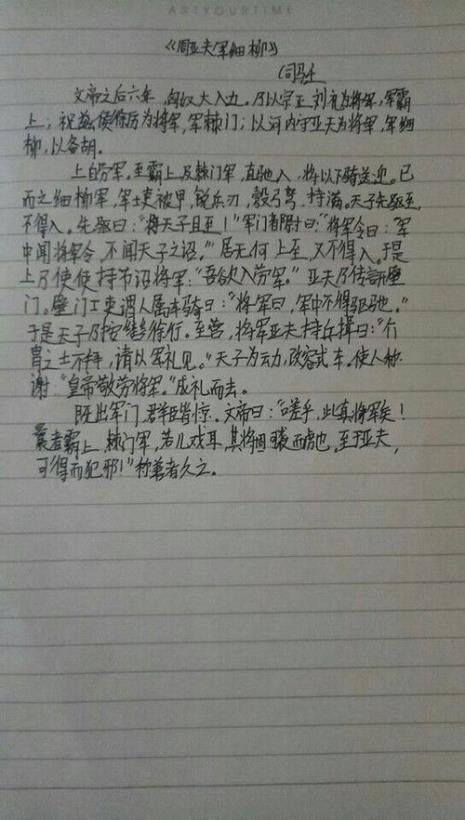 ARTYOURTIME
《周亚夫军细柳》
司马迁
文帝之后六年，匈奴大入边。乃以宗正刘礼为将军，军霸
上；祝兹侯徐厉为将军，军棘门；以河内守亚夫为将军，军细
柳，以备胡。
上自劳军，至霸上及棘门军，直驰入，将以下骑送迎。已
而之细柳军，军士吏被甲，锐兵刃，彀弓弩，持满。天子先驱至，
不得入。先驱曰："将天子且至！"军门都尉曰："将军令曰：'军
中闻将军令，不闻天子之诏。'"居无何，上至，又不得入。于是
上乃使使持节诏将军："吾欲入劳军。"亚夫乃传言开壁
门。壁门士吏谓人属车骑曰："将军曰，军中不得驱驰。"
于是天子乃按辔徐行。至营，将军亚夫持兵揖曰："介
胄之士不拜，请以军礼见。"天子为动，改容式车。使人称
谢："皇帝敬劳将军。"成礼而去。
既出军门，群臣皆惊。文帝曰："嗟乎，此真将军矣！
曩者霸上、棘门军，若儿戏耳，其将固可袭而虏也，至于亚夫，
可得而犯邪！"称善者久之。